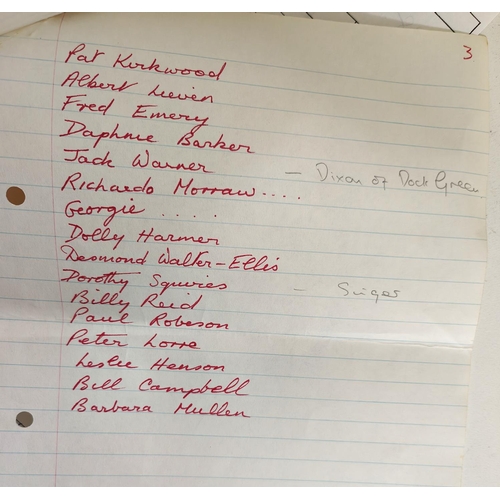 3
Pat Kirkwood
Albert Lieven
Fred Emery
Daphne Barker
Jack Warner — Dixon of Dock Green
Richardo Morraw....
Georgie .....
Dolly Harmer
Desmond Walter-Ellis
Dorothy Squires — Singer
Billy Reid
Paul Robeson
Peter Lorre
Leslie Henson
Bill Campbell
Barbara Mullen